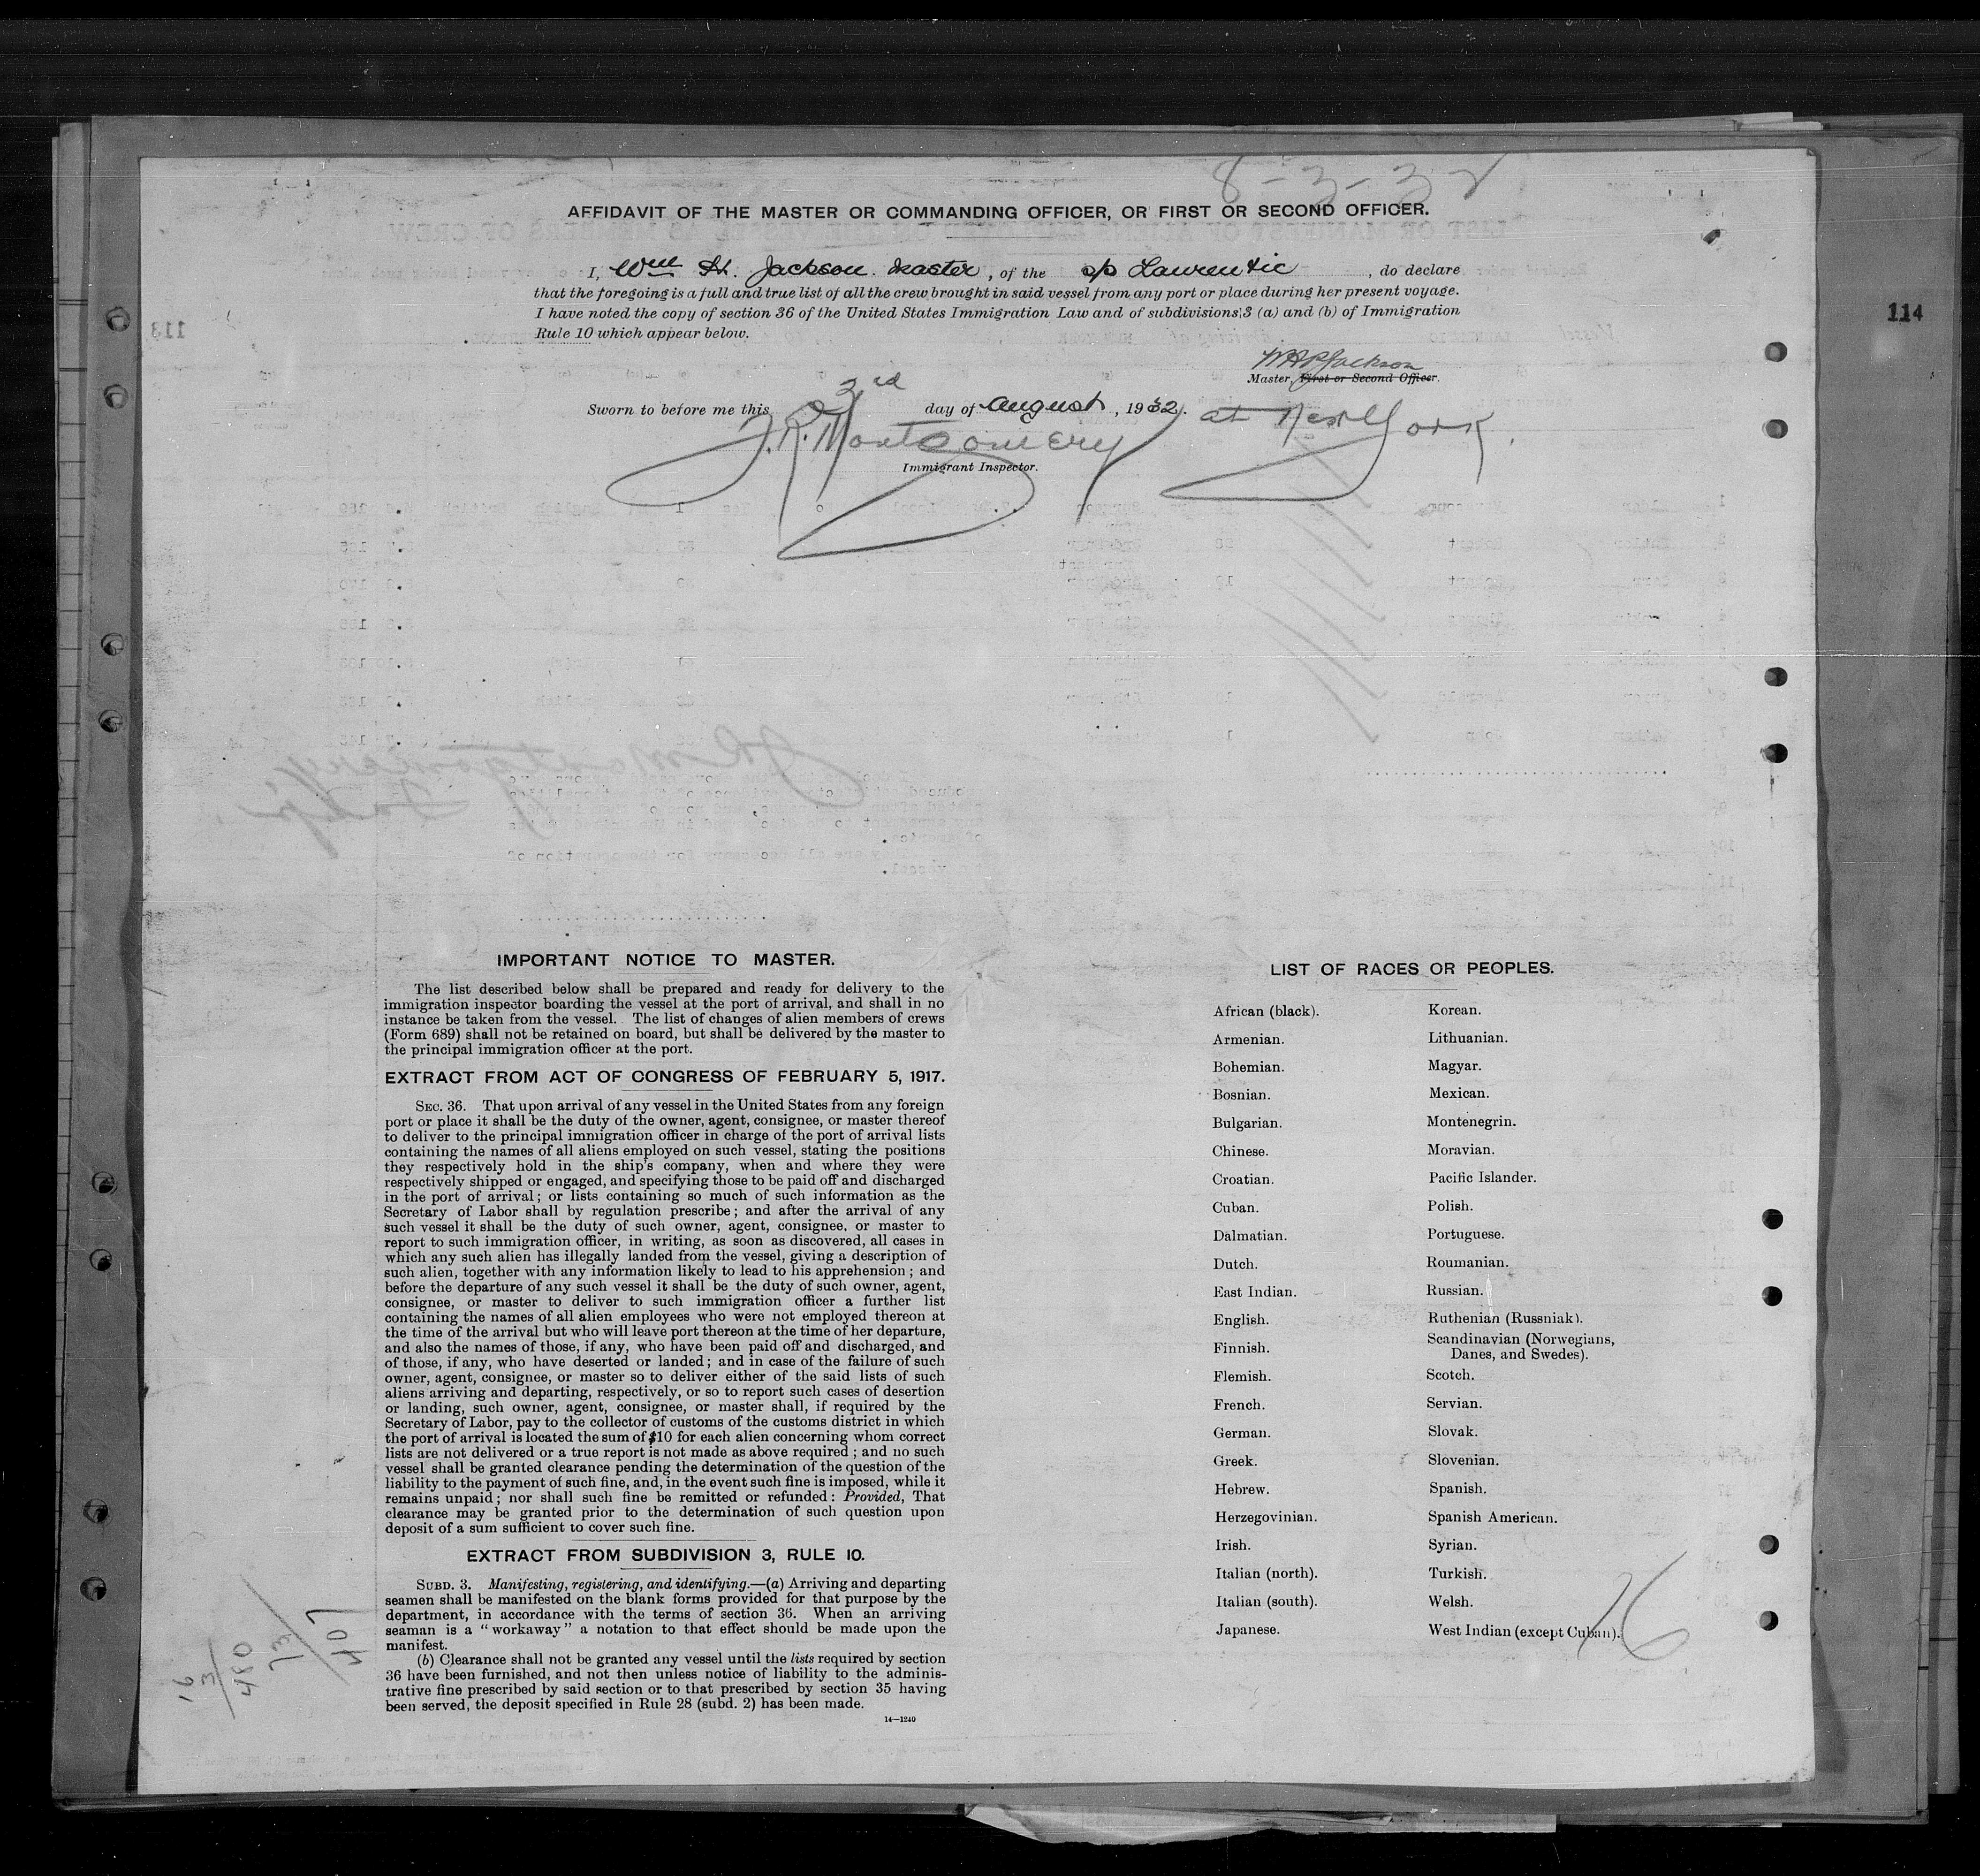 8-3-32
AFFIDAVIT OF THE MASTER OR COMMANDING OFFICER, OR FIRST OR SECOND OFFICER.
I, Wm H. Jackson. Master, of the s/s Laurentic, do declare
that the foregoing is a full and true list of all the crew brought in said vessel from any port or place during her present voyage.
I have noted the copy of section 36 of the United States Immigration Law and of subdivisions 3 (a) and (b) of Immigration
Rule 10 which appear below.
114
Jackson
Master, First or Second Officer.
Sworn to before me this 3rd day of August, 1932. at New York.
J.R. Montgomery
Immigrant Inspector.
IMPORTANT NOTICE TO MASTER.
The list described below shall be prepared and ready for delivery to the
immigration inspector boarding the vessel at the port of arrival, and shall in no
instance be taken from the vessel. The list of changes of alien members of crews
(Form 689) shall not be retained on board, but shall be delivered by the master to
the principal immigration officer at the port.
EXTRACT FROM ACT OF CONGRESS OF FEBRUARY 5, 1917.
SEC. 36. That upon arrival of any vessel in the United States from any foreign
port or place it shall be the duty of the owner, agent, consignee, or master thereof
to deliver to the principal immigration officer in charge of the port of arrival lists
containing the names of all aliens employed on such vessel, stating the positions
they respectively hold in the ship's company, when and where they were
respectively shipped or engaged, and specifying those to be paid off and discharged
in the port of arrival; or lists containing so much of such information as the
Secretary of Labor shall by regulation prescribe; and after the arrival of any
such vessel it shall be the duty of such owner, agent, consignee, or master to
report to such immigration officer, in writing, as soon as discovered, all cases in
which any such alien has illegally landed from the vessel, giving a description of
such alien, together with any information likely to lead to his apprehension; and
before the departure of any such vessel it shall be the duty of such owner, agent,
consignee, or master to deliver to such immigration officer a further list
containing the names of all alien employees who were not employed thereon at
the time of the arrival but who will leave port thereon at the time of her departure,
and also the names of those, if any, who have been paid off and discharged, and
of those, if any, who have deserted or landed; and in case of the failure of such
owner, agent, consignee, or master so to deliver either of the said lists of such
aliens arriving and departing, respectively, or so to report such cases of desertion
or landing, such owner, agent, consignee, or master shall, if required by the
Secretary of Labor, pay to the collector of customs of the customs district in which
the port of arrival is located the sum of $10 for each alien concerning whom correct
lists are not delivered or a true report is not made as above required; and no such
vessel shall be granted clearance pending the determination of the question of the
liability to the payment of such fine, and, in the event such fine is imposed, while it
remains unpaid; nor shall such fine be remitted or refunded: Provided, That
clearance may be granted prior to the determination of such question upon
deposit of a sum sufficient to cover such fine.
EXTRACT FROM SUBDIVISION 3, RULE 10.
SUBD. 3. Manifesting, registering, and identifying.—(a) Arriving and departing
seamen shall be manifested on the blank forms provided for that purpose by the
department, in accordance with the terms of section 36. When an arriving
seaman is a "workaway" a notation to that effect should be made upon the
manifest.
(b) Clearance shall not be granted any vessel until the lists required by section
36 have been furnished, and not then unless notice of liability to the adminis-
trative fine prescribed by said section or to that prescribed by section 35 having
been served, the deposit specified in Rule 28 (subd. 2) has been made.
14—1240
LIST OF RACES OR PEOPLES.
African (black).
Armenian.
Bohemian.
Bosnian.
Bulgarian.
Chinese.
Croatian.
Cuban.
Dalmatian.
Dutch.
East Indian.
English.
Finnish.
Flemish.
French.
German.
Greek.
Hebrew.
Herzegovinian.
Irish.
Italian (north).
Italian (south).
Japanese.
Korean.
Lithuanian.
Magyar.
Mexican.
Montenegrin.
Moravian.
Pacific Islander.
Polish.
Portuguese.
Roumanian.
Russian.
Ruthenian (Russniak).
Scandinavian (Norwegians,
Danes, and Swedes).
Scotch.
Servian.
Slovak.
Slovenian.
Spanish.
Spanish American.
Syrian.
Turkish.
Welsh.
West Indian (except Cuban).
16
407
73
480
3
16